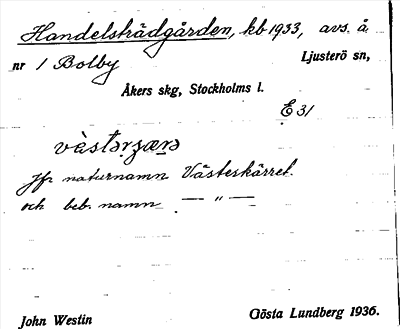 Handelsträdgården, kb 1933, avs. å
nr 1 Bolby Ljusterö sn,
Åkers skg, Stockholms l.
E 31
Jfr naturnamn Västeskärret
och beb. namn — " —
John Westin Gösta Lundberg 1936.